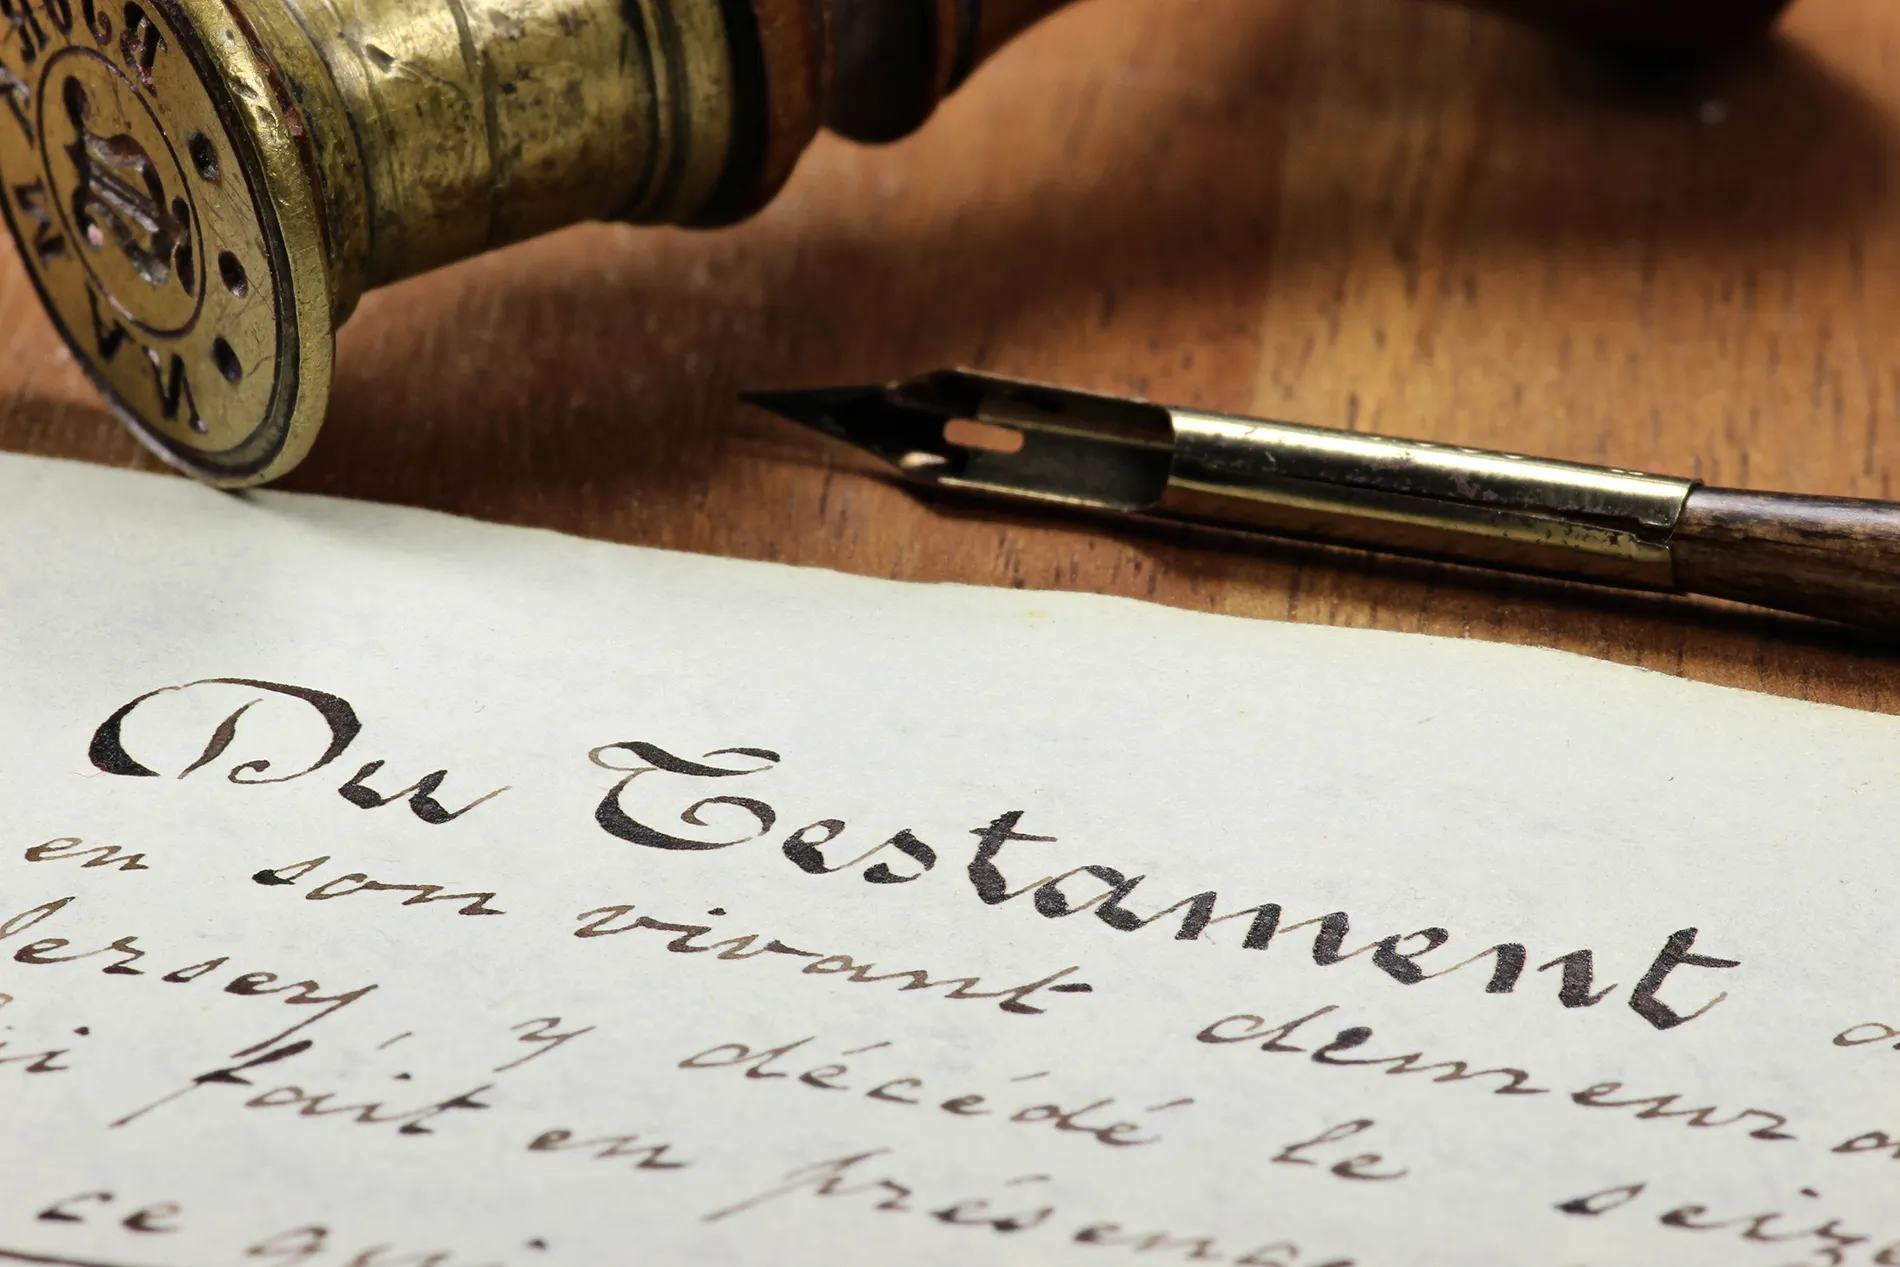 Du Testament
en son vivant demeura
Jersey y décédé le seiz
fait en présen
ce qui